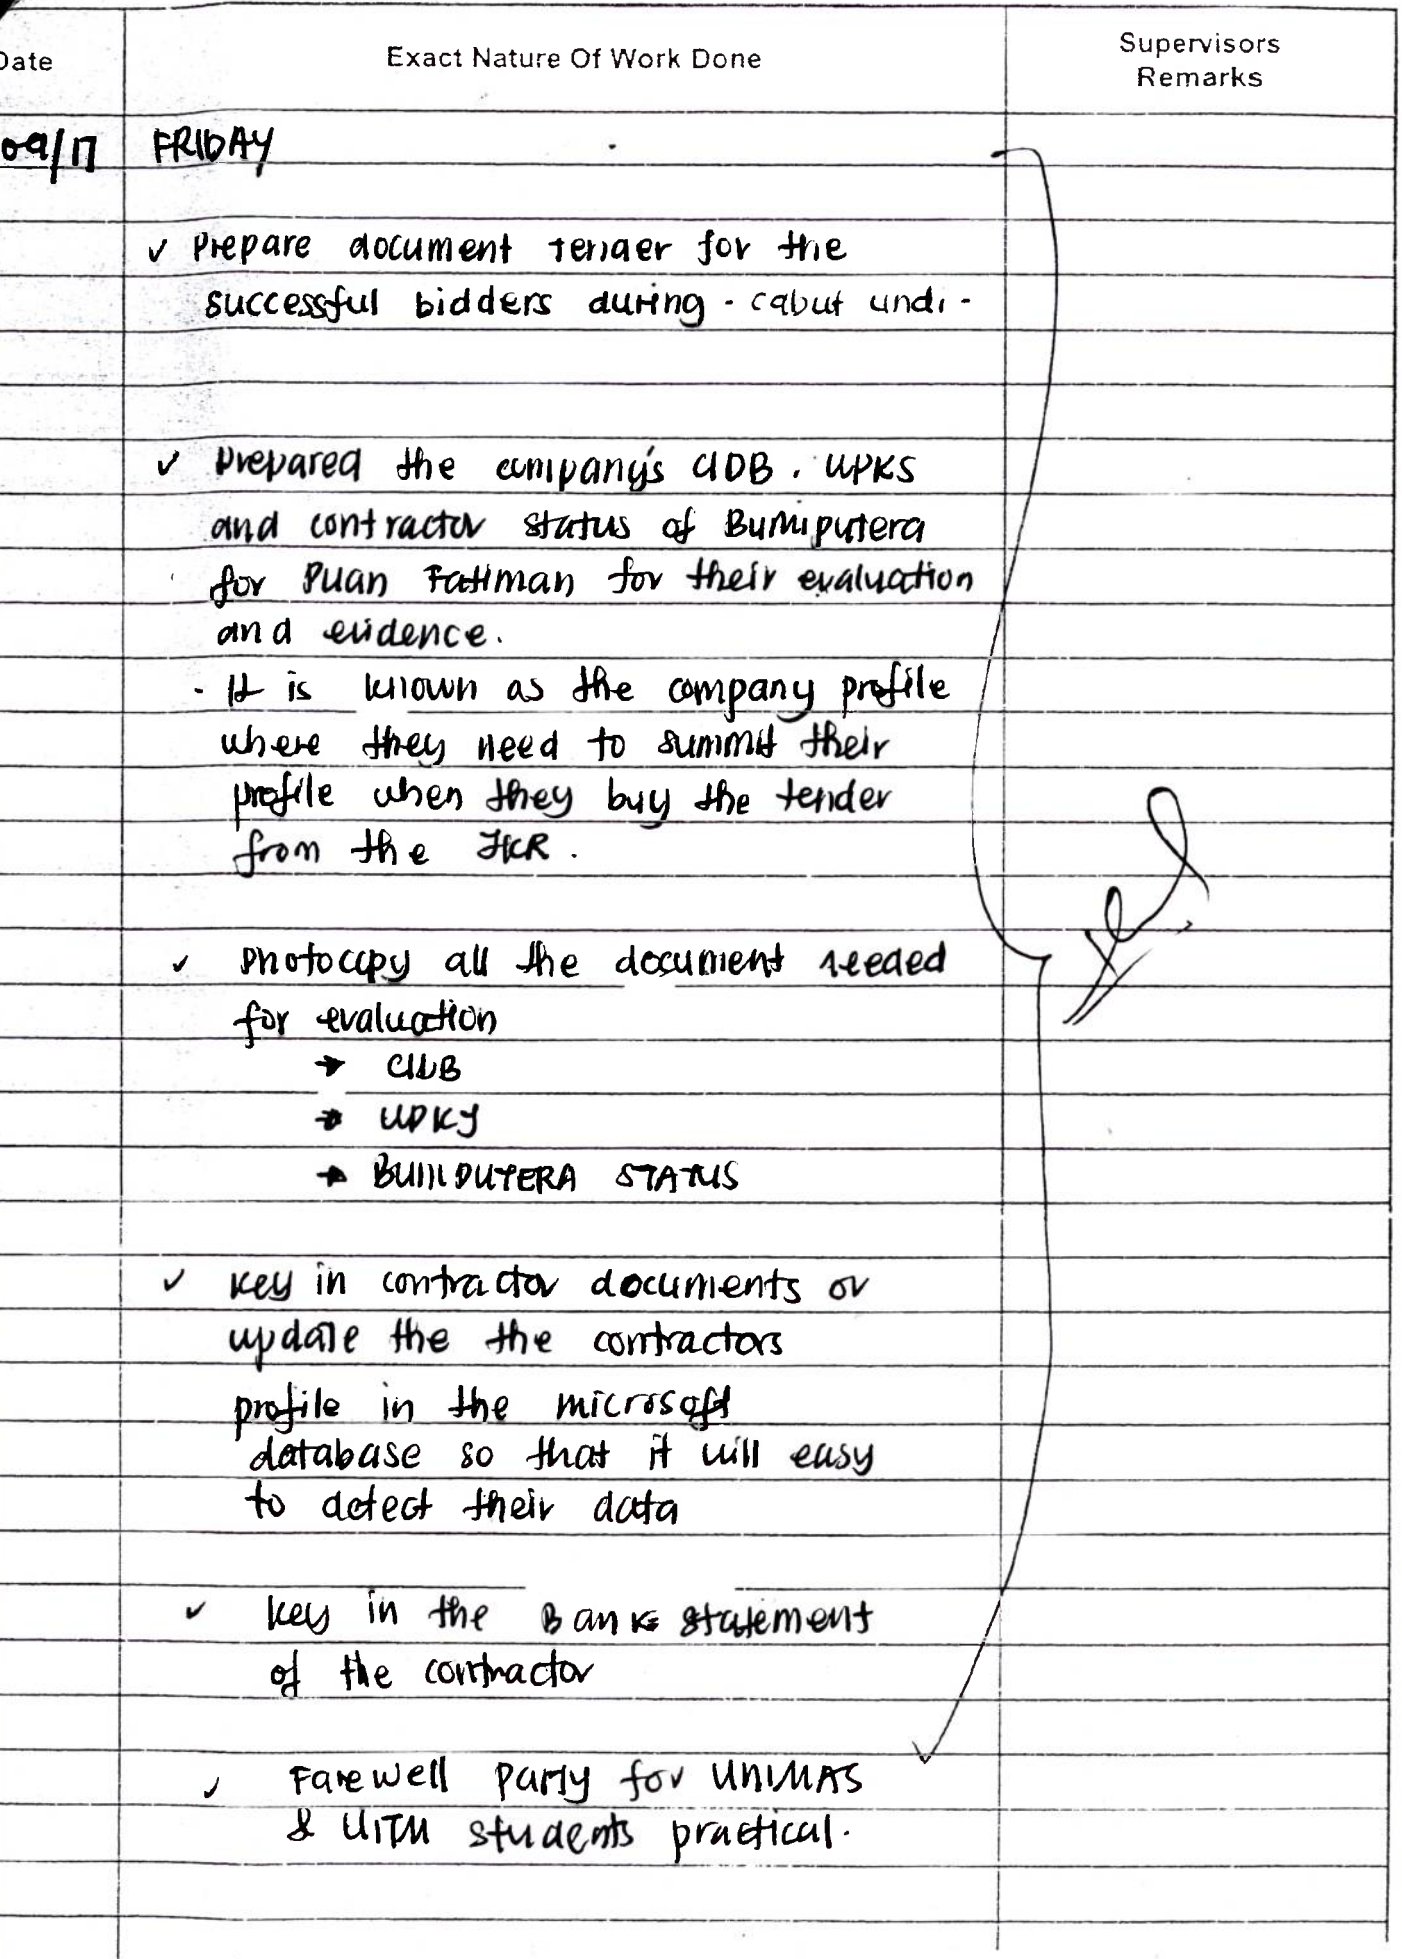 Date
Exact Nature Of Work Done
Supervisors
Remarks
09/17 FRIDAY
✓ Prepare document tender for the
successful bidders during - cabut undi -
✓ Prepared the company's CIDB, UPKS
and contractor status of Bumiputera
for Puan Fatimah for their evaluation
and evidence.
- It is known as the company profile
where they need to summit their
profile when they buy the tender
from the JKR.
✓ Photocopy all the document needed
for evaluation
→ CIDB
→ UPKJ
→ BUMIPUTERA STATUS
✓ Key in contractor documents or
update the the contractors
profile in the microsoft
database so that it will easy
to detect their data
✓ Key in the Bank statement
of the contractor
✓ Farewell Party for UNIMAS
& UITM students practical.